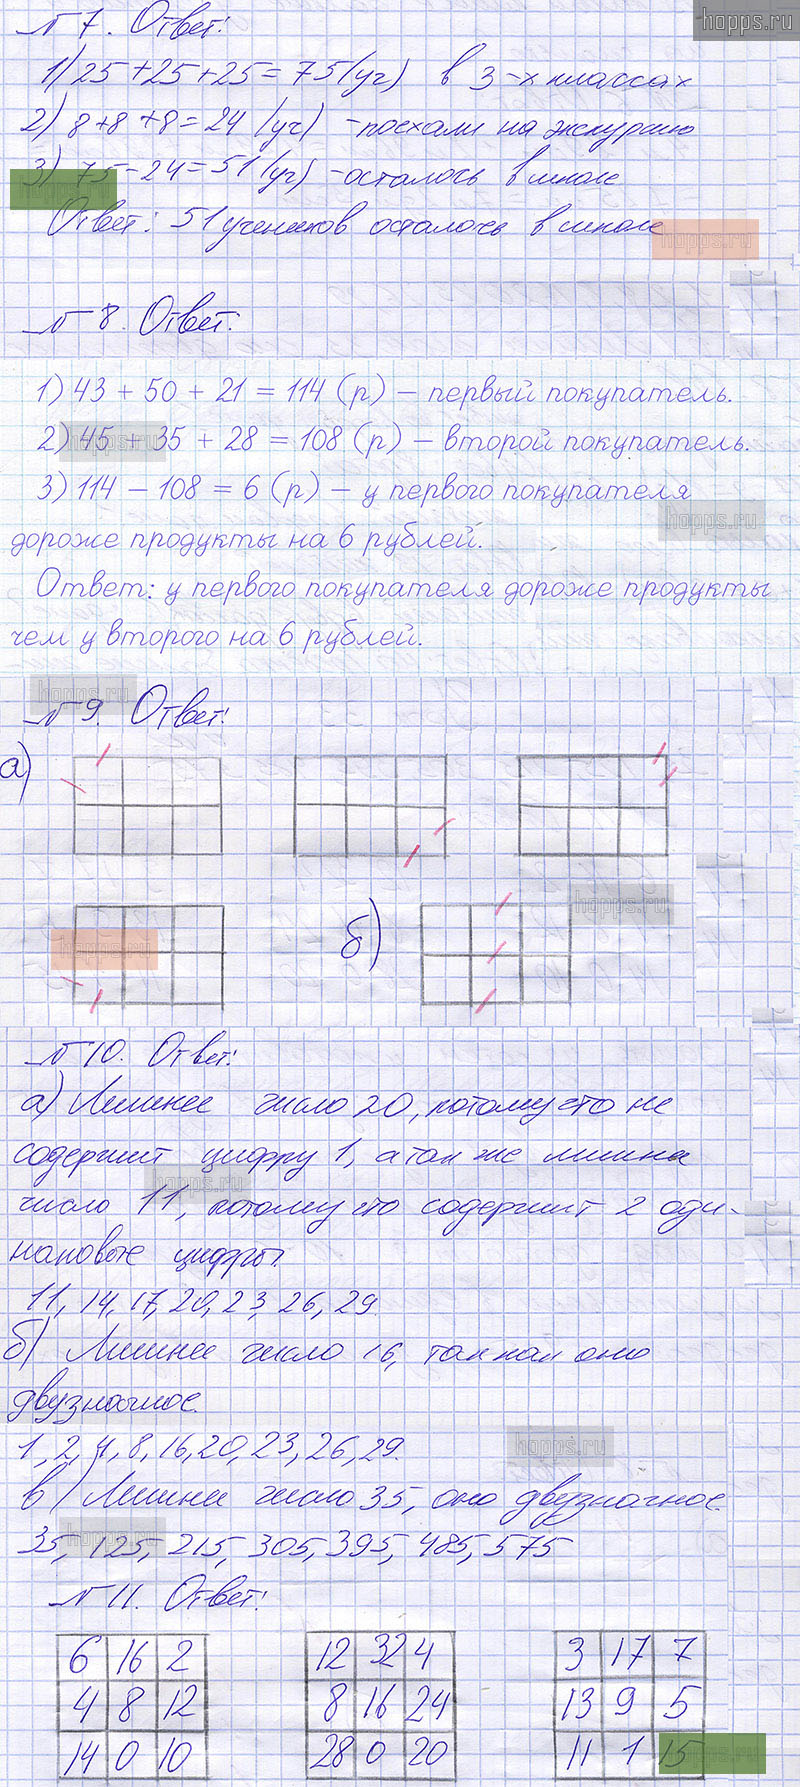 hopps.ru
№7. Ответ:
1) 25+25+25=75(уч) в 3-х классах
2) 8+8+8=24 (уч) -поехали на экскурсию
3) 75-24=51(уч) -осталось в школе
Ответ: 51 учеников осталось в школе
hopps.ru
№8. Ответ:
1) 43 + 50 + 21 = 114 (р) – первый покупатель.
2) 45 + 35 + 28 = 108 (р) – второй покупатель.
3) 114 – 108 = 6 (р) – у первого покупателя
hopps.ru
дороже продукты на 6 рублей.
Ответ: у первого покупателя дороже продукты
чем у второго на 6 рублей.
hopps.ru
№9. Ответ:
а)
hopps.ru
б)
hopps.ru
№10. Ответ:
а) Лишнее число 20, потому что не
содержит цифру 1, а так же лишнее
hopps.ru
число 11, потому что содержит 2 оди-
наковые цифры.
11, 14, 17, 20, 23, 26, 29.
б) Лишнее число 16, так как оно
двузначное.
1, 2, 4, 8, 16, 20, 23, 26, 29.
hopps.ru
в) Лишнее число 35, оно двузначное.
hopps.ru
35, 125, 215, 305, 395, 485, 575
№11. Ответ:
6 16 2 12 32 4 3 17 7
4 8 12 8 16 24 13 9 5
14 0 10 28 0 20 11 1 15
hopps.ru